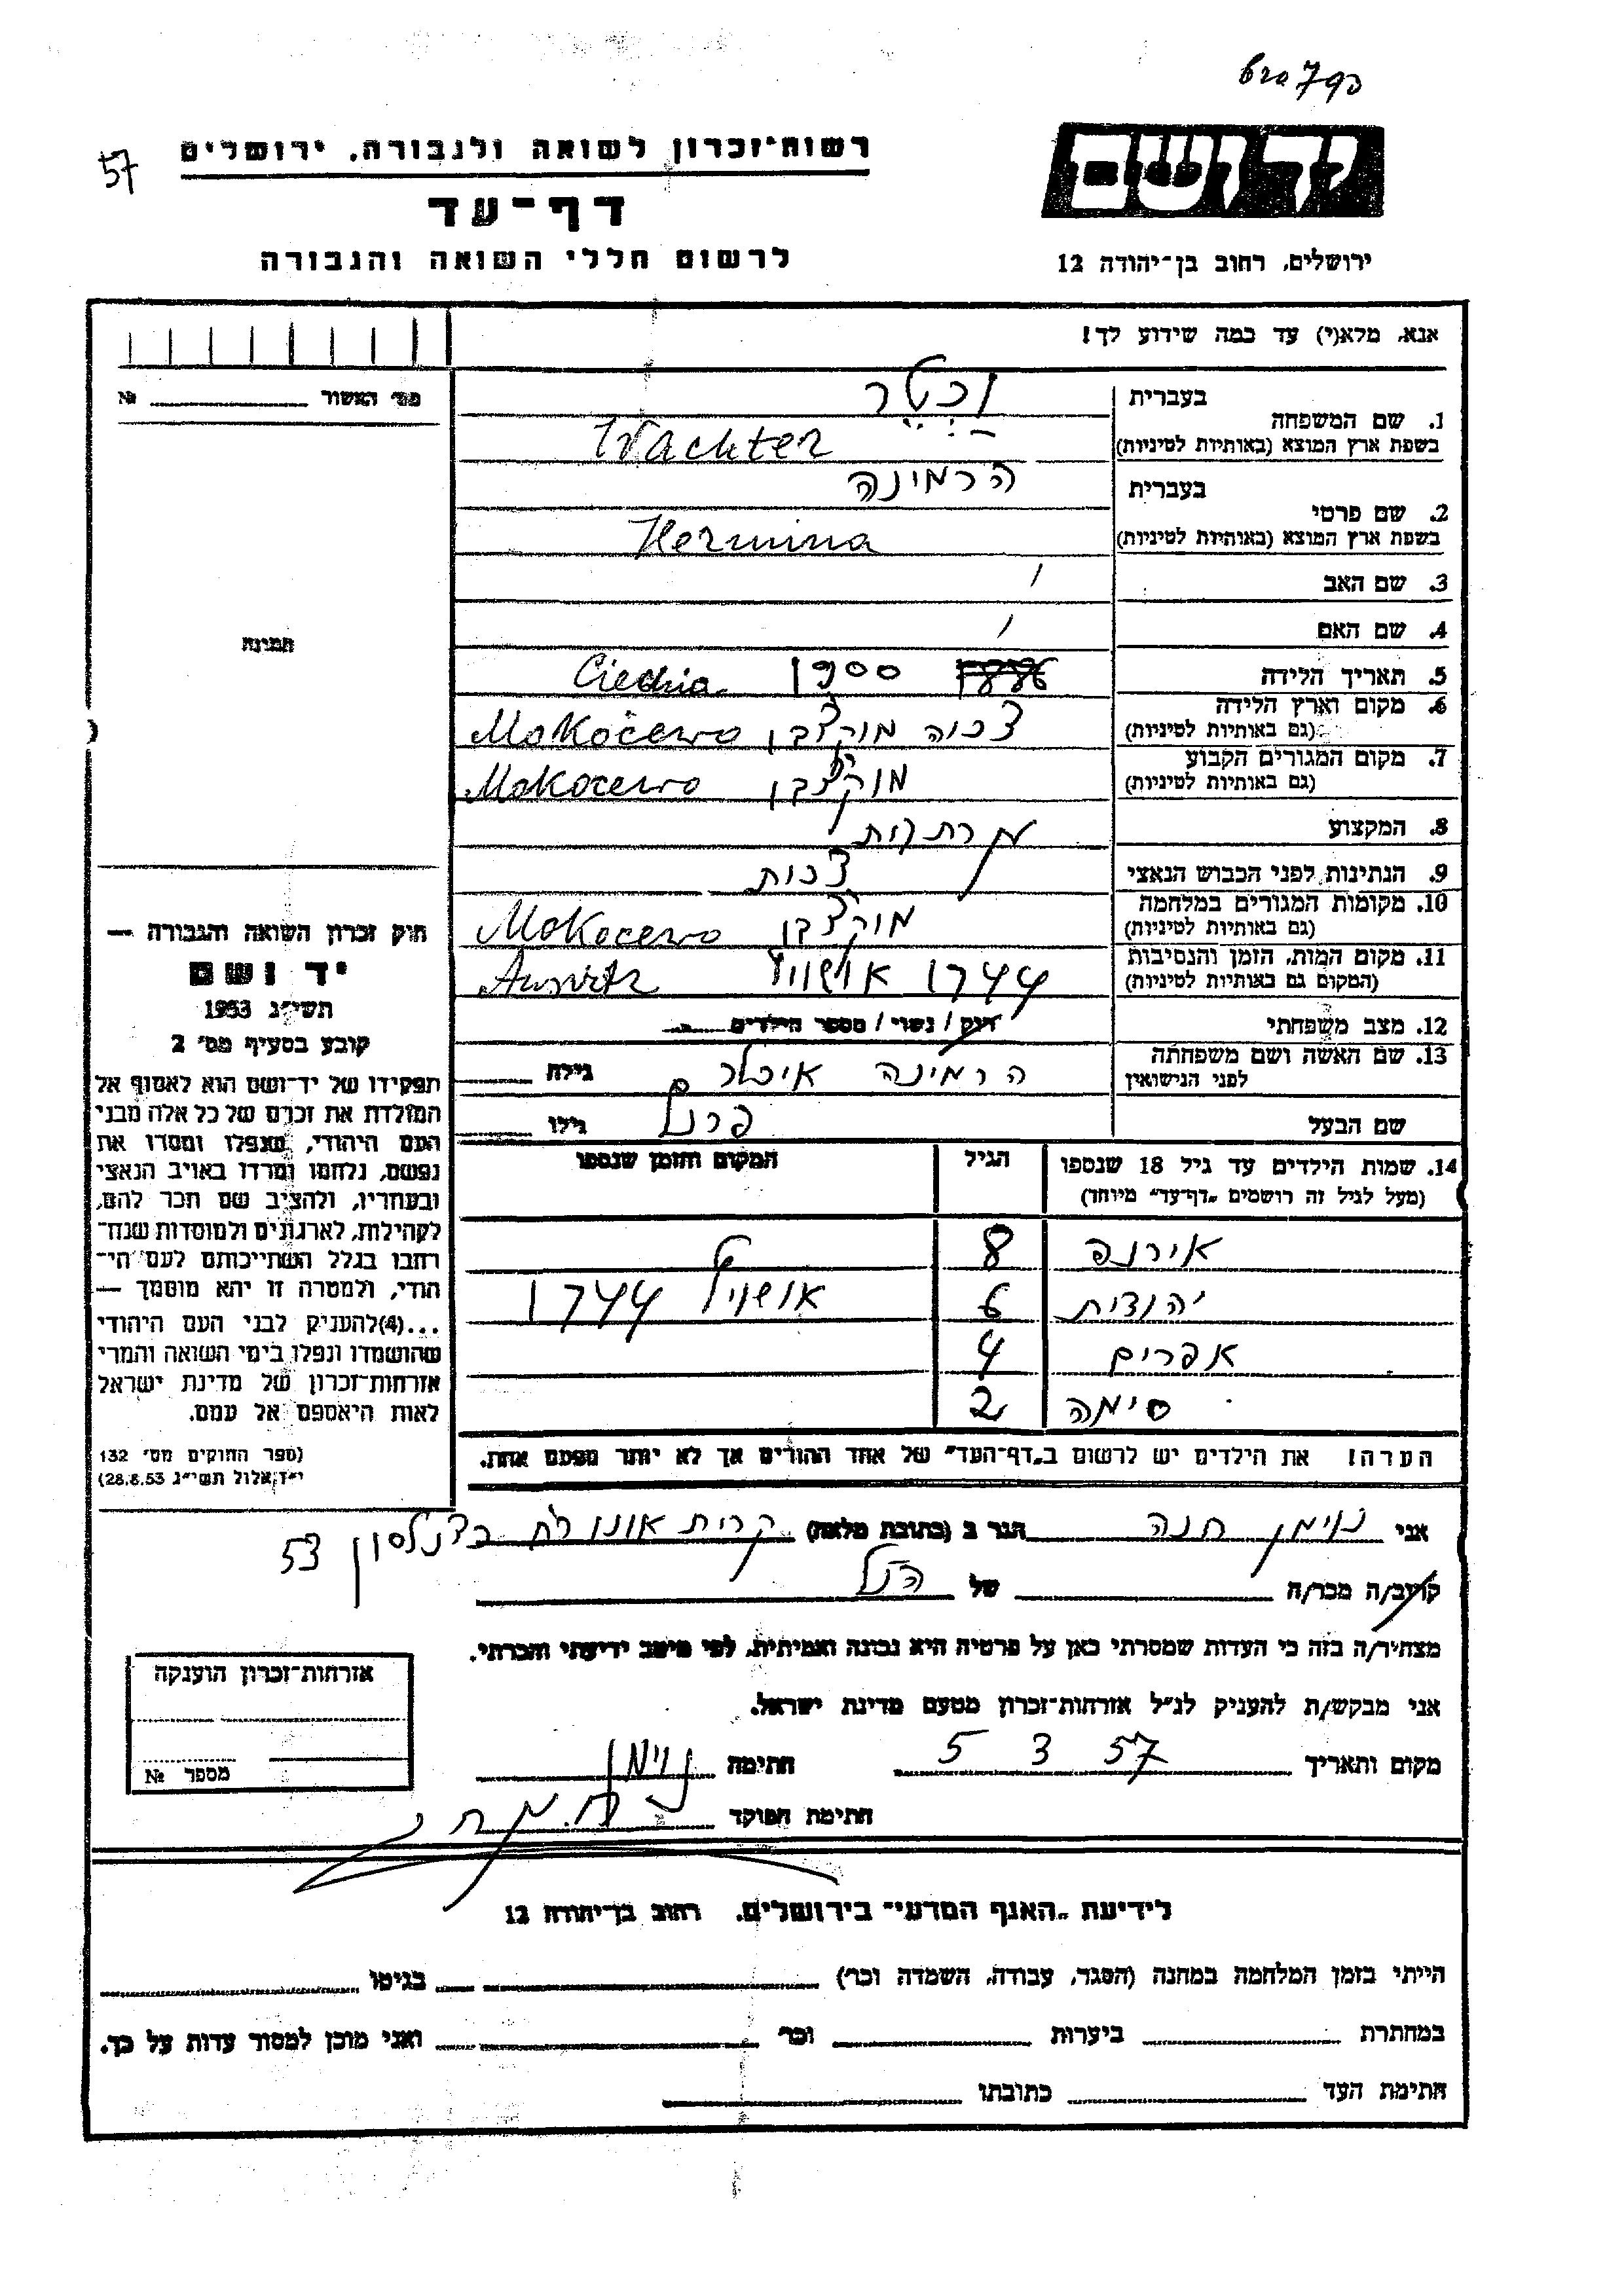 57
רשות־זכרון לשואה ולגבורה, ירושלים
דף־עד
לרשום חללי השואה והגבורה
יד ושם
ירושלים, רחוב בן־יהודה 12
אנא, מלא(י) עד כמה שידוע לך!
מס׳ האשור № 
1. שם המשפחה בעברית וכטר
בשפת ארץ המוצא (באותיות לטיניות) Wachter
2. שם פרטי בעברית הרמינה
בשפת ארץ המוצא (באותיות לטיניות) Hermina
3. שם האב
4. שם האם
5. תאריך הלידה 1900
6. מקום וארץ הלידה
(גם באותיות לטיניות) צכיה Mokocewo
7. מקום המגורים הקבוע
(גם באותיות לטיניות) Mokocewo
8. המקצוע
9. הנתינות לפני הכבוש הנאצי צכית
10. מקומות המגורים במלחמה
(גם באותיות לטיניות) Mokocewo
11. מקום המות, הזמן והנסיבות
(המקום גם באותיות לטיניות) 1944 אושויץ
12. מצב משפחתי רוק/נשוי/מספר הילדים
13. שם האשה ושם משפחתה
לפני הנישואין הרמינה גילה
שם הבעל גילו
14. שמות הילדים עד גיל 18 שנספו
(מעל לגיל זה רושמים „דף־עד״ מיוחד)
הגיל
המקום והזמן שנספו
אירנה 8
יהודית 6 אושויץ 1944
אפרים 4
סימה 2
הערה! את הילדים יש לרשום ב„דף־העד״ של אחד ההורים אך לא יותר מפעם אחת.
תמונה
חוק זכרון השואה והגבורה —
יד ושם
תשי״ג 1953
קובע בסעיף מס׳ 2
תפקידו של יד־ושם הוא לאסוף אל
המולדת את זכרם של כל אלה מבני
העם היהודי, שנפלו ומסרו את
נפשם, נלחמו ומרדו באויב הנאצי
ובעוזריו, ולהציב שם וזכר להם,
לקהילות, לארגונים ולמוסדות שנח־
רבו בגלל השתייכותם לעם הי־
הודי, ולמטרה זו יהא מוסמך —
...(4) להעניק לבני העם היהודי
שהושמדו ונפלו בימי השואה והמרי
אזרחות־זכרון של מדינת ישראל
לאות היאספם אל עמם.
(ספר החוקים מס׳ 132
י״ז אלול תשי״ג 28.8.53)
אני נוימן חנה הגר ב (כתובת מלאה) קרית אונו 53
קרוב/ה מכר/ה של הנ״ל
מצהיר/ה בזה כי העדות שמסרתי כאן על פרטיה היא נכונה ואמיתית, לפי מיטב ידיעתי והכרתי.
אני מבקש/ת להעניק לנ״ל אזרחות־זכרון מטעם מדינת ישראל.
מקום ותאריך 5 3 57 חתימה נוימן
חתימת הפוקד
אזרחות־זכרון הוענקה
מספר №
לידיעת „האגף המדעי״ בירושלים, רחוב בן־יהודה 12
הייתי בזמן המלחמה במחנה (הסגר, עבודה, השמדה וכר׳) בגיטו
במחתרת ביערות וכר׳ ואני מוכן למסור עדות על כך.
חתימת העד כתובתו